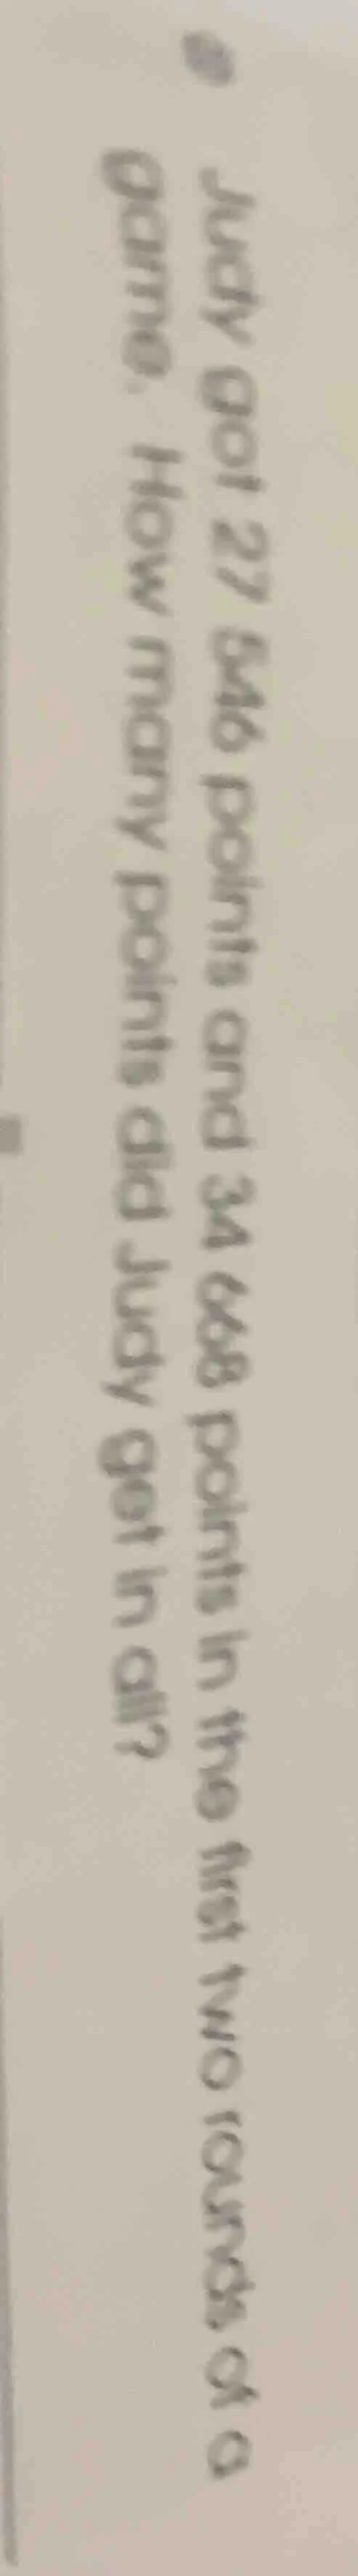 Judy got 27 546 points and 34 668 points in the first two rounds of a
game. How many points did Judy get in all?